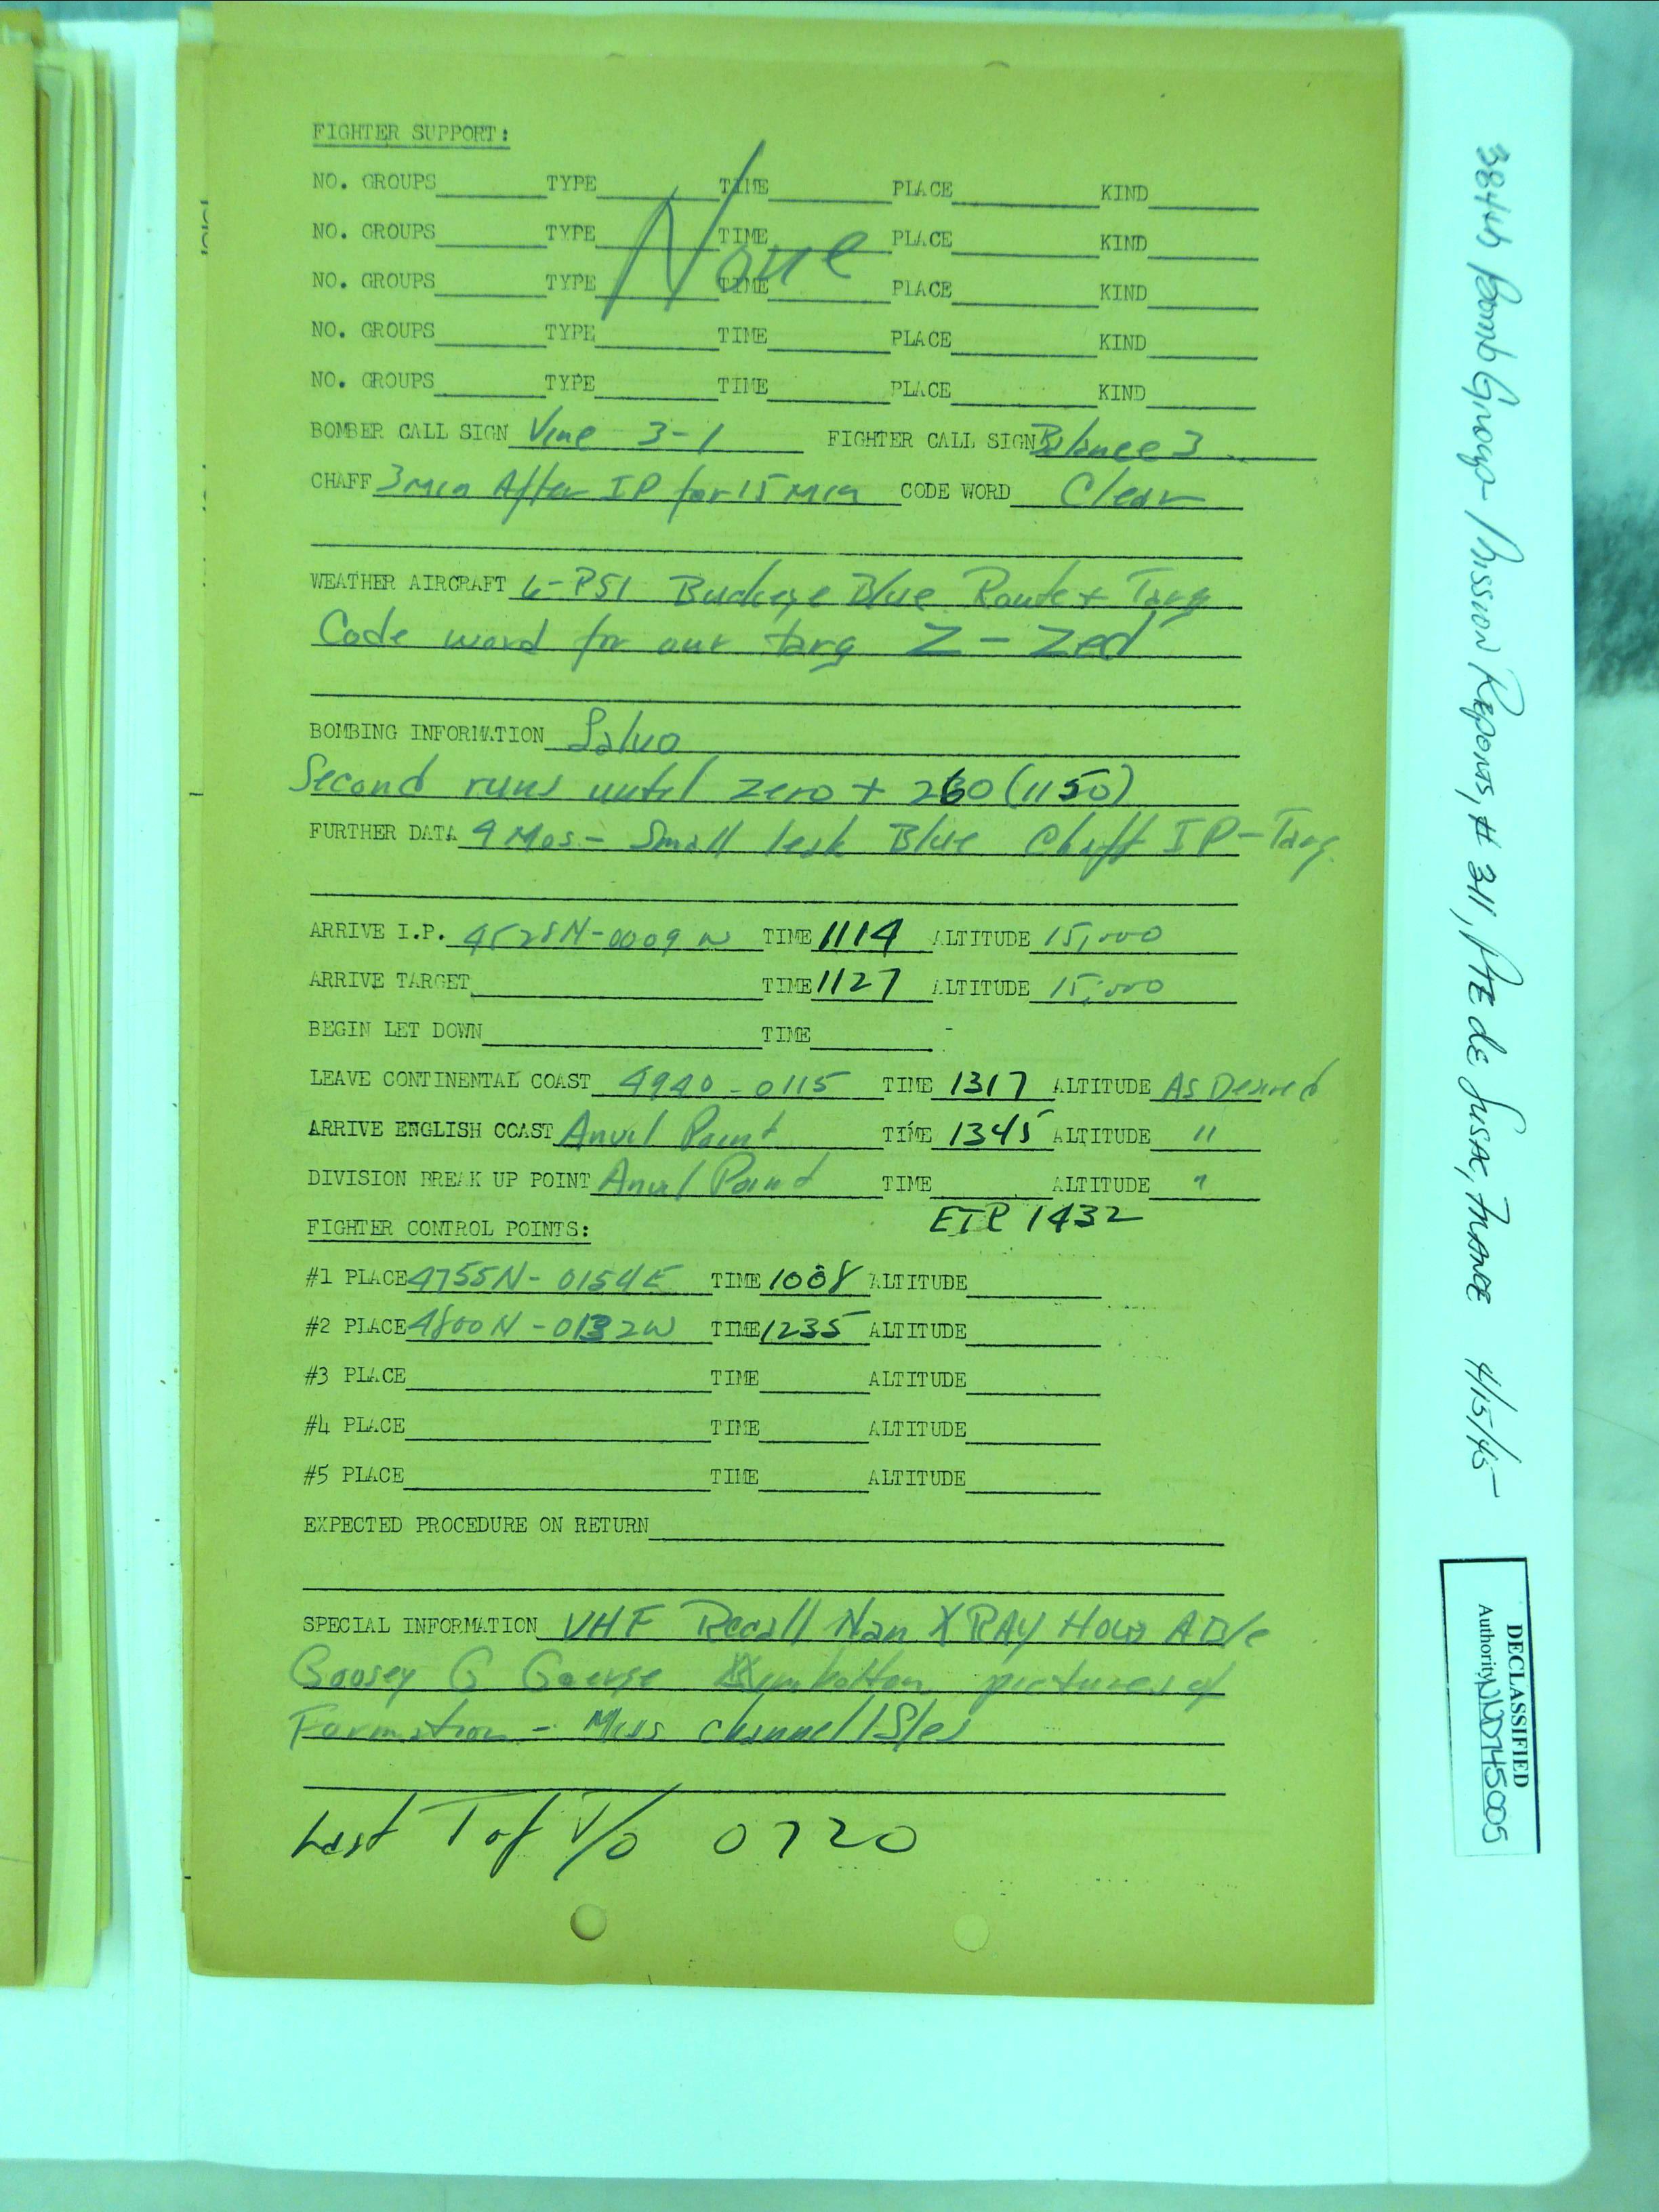 FIGHTER SUPPORT:
NO. GROUPS TYPE TIME PLACE KIND
NO. GROUPS TYPE TIME PLACE KIND
None
NO. GROUPS TYPE TIME PLACE KIND
NO. GROUPS TYPE TIME PLACE KIND
NO. GROUPS TYPE TIME PLACE KIND
BOMBER CALL SIGN Vine 3-1 FIGHTER CALL SIGN Balance 3
CHAFF 3 Min After IP for 15 Min CODE WORD Clear
WEATHER AIRCRAFT 6-P51 Buckeye Blue Route + Targ
Code word for our targ Z - Zed
BOMBING INFORMATION Salvo
Second runs until zero + 260 (1150)
FURTHER DATA 4 Mos - Small leak Blue Chaff IP - Targ.
ARRIVE I.P. 4528N-0009 W TIME 1114 ALTITUDE 15,000
ARRIVE TARGET TIME 1127 ALTITUDE 15,000
BEGIN LET DOWN TIME
LEAVE CONTINENTAL COAST 4940 - 0115 TIME 1317 ALTITUDE As Desired
ARRIVE ENGLISH COAST Anvil Point TIME 1345 ALTITUDE "
DIVISION BREAK UP POINT Anvil Point TIME ALTITUDE "
ETR 1432
FIGHTER CONTROL POINTS:
#1 PLACE 4755N - 0154E TIME 1008 ALTITUDE
#2 PLACE 4800N - 0132W TIME 1235 ALTITUDE
#3 PLACE TIME ALTITUDE
#4 PLACE TIME ALTITUDE
#5 PLACE TIME ALTITUDE
EXPECTED PROCEDURE ON RETURN
SPECIAL INFORMATION VHF Recall Nan XRAY How Able
Goosey G George Kimbolton pictures of
Formation - Miss Channel Isles
Last T of T/O 0720
384th Bomb Group - Mission Reports, # 311, Pte de Susac, France 4/15/45
DECLASSIFIED
Authority NND745005